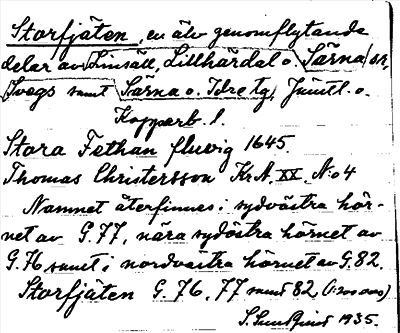 Storfjäten, en älv genomflytande
delar av Linsäll, Lillhärdal o. Särna sn,
Svegs samt Särna o. Idre tg, Jämtl. o.
Kopparb. l.
Stora Fethan fluvig 1645.
Thomas Christersson Kr.A. XX. No 4
Namnet återfinnes i sydvästra hör-
net av G.77, nära sydöstra hörnet av
G.76 samt i nordvästra hörnet av G.82.
Storfjäten G. 76, 77 samt 82 (1:200 000)
S. Lundqvist 1935.